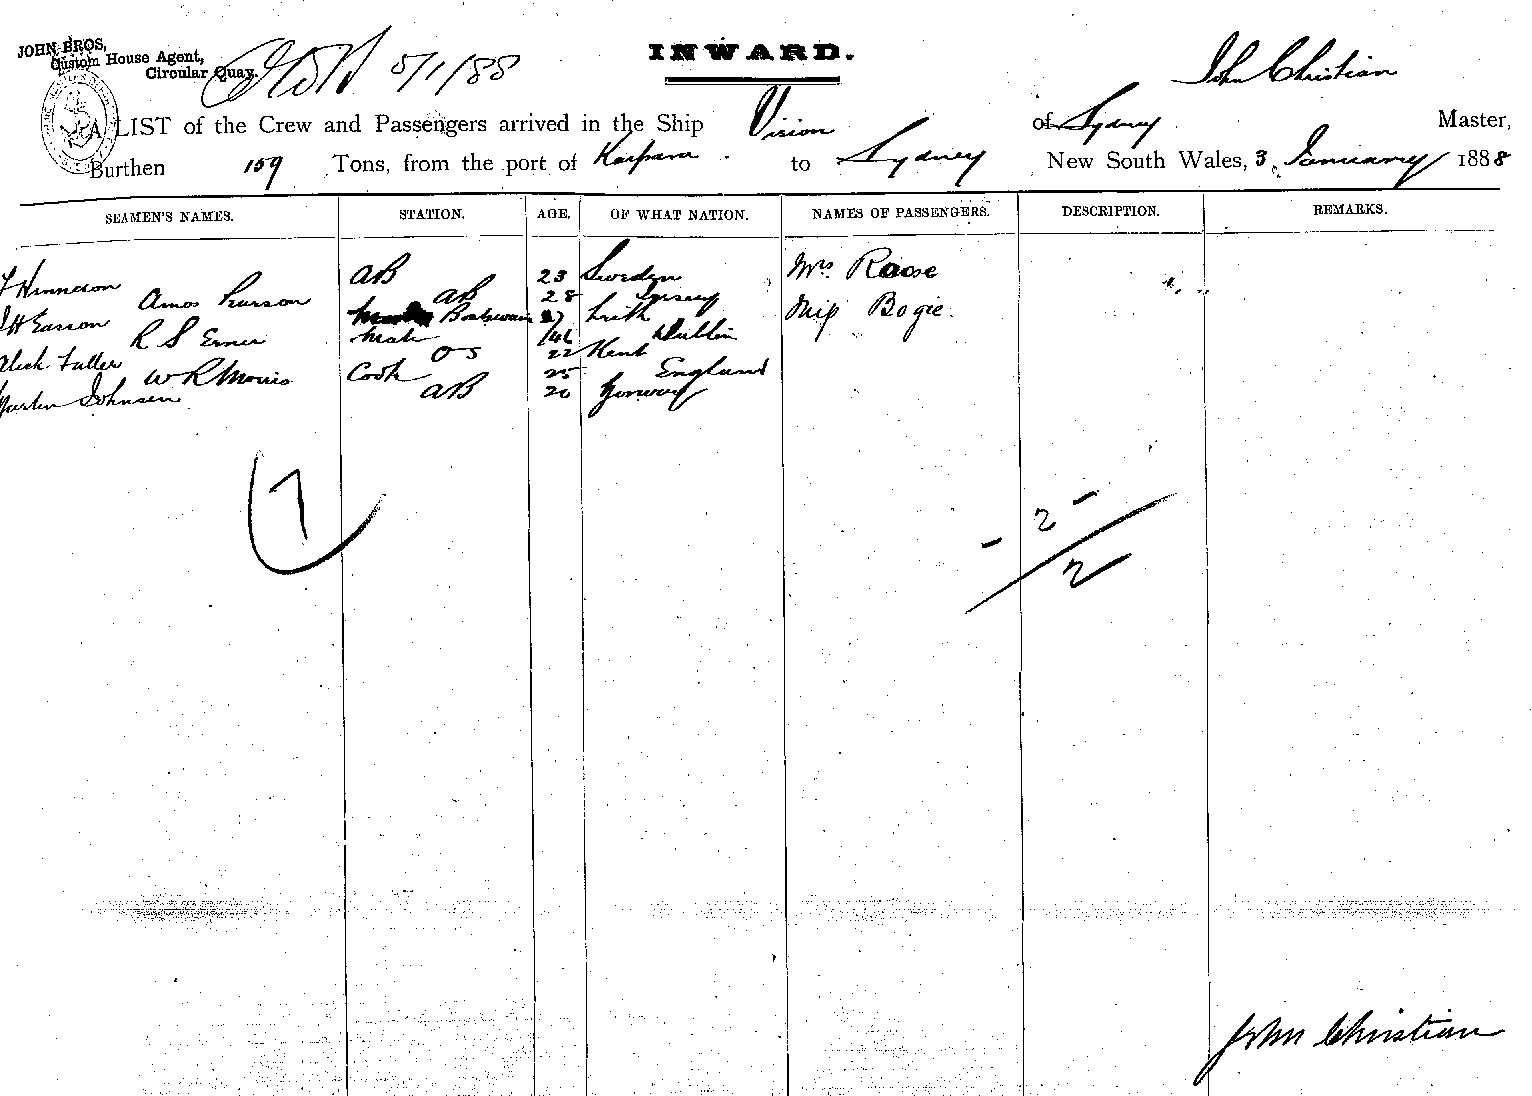 JOHN BROS,
Custom House Agent,
Circular Quay.
5/1/88
INWARD.
John Christian
A LIST of the Crew and Passengers arrived in the Ship Vision of Sydney Master,
Burthen 159 Tons, from the port of Kaipara to Sydney New South Wales, 3 January 1888
SEAMEN'S NAMES. STATION. AGE. OF WHAT NATION. NAMES OF PASSENGERS. DESCRIPTION. REMARKS.
AB 23 Sweden Mrs Roose
Amos AB 28 Jersey
Easson Boatswain 27 Leith Miss Bogie.
R S Mate Dublin
Alick Fuller OS 22 Kent
W R Morris Cook 25 England
Martin Johnsen AB 20 Norway
7
- 2 -
2
John Christian